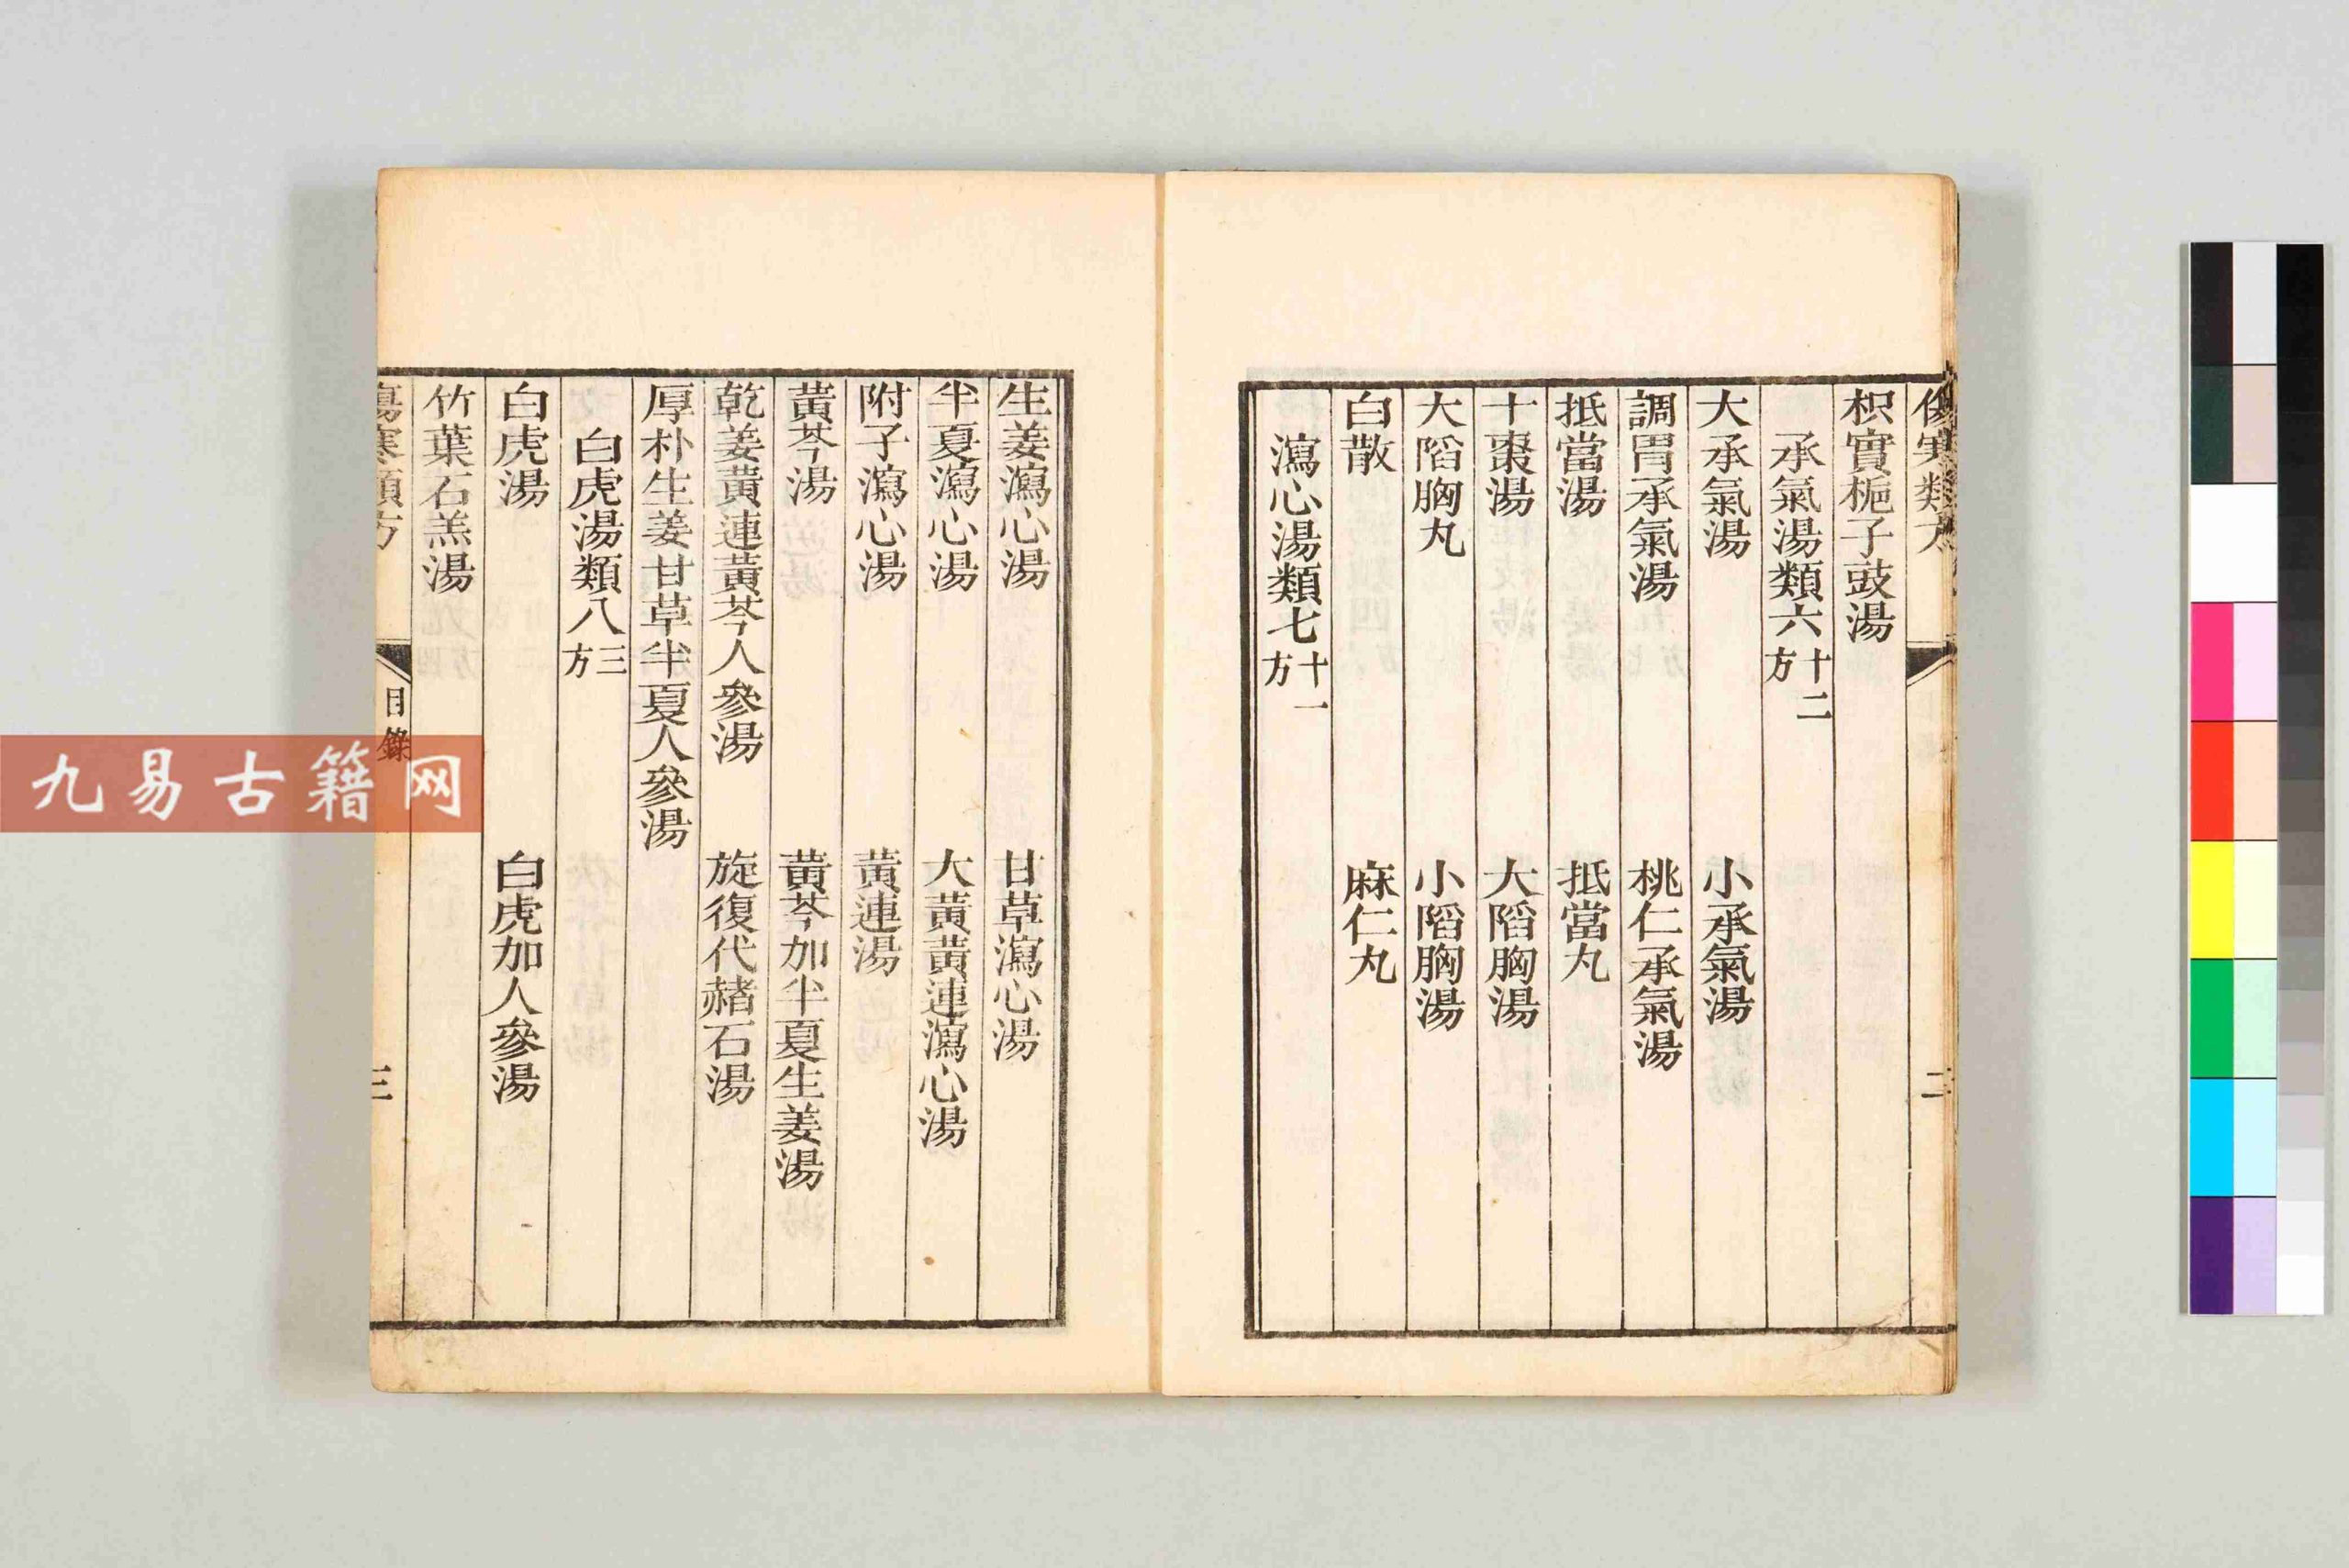 傷寒類方
二
枳實梔子豉湯
承氣湯類六十二方
大承氣湯 小承氣湯
調胃承氣湯 桃仁承氣湯
抵當湯 抵當丸
十棗湯 大陷胸湯
大陷胸丸 小陷胸湯
白散 麻仁丸
瀉心湯類七十一方
生姜瀉心湯 甘草瀉心湯
半夏瀉心湯 大黃黃連瀉心湯
附子瀉心湯 黃連湯
黃芩湯 黃芩加半夏生姜湯
乾姜黃連黃芩人參湯 旋復代赭石湯
厚朴生姜甘草半夏人參湯
白虎湯類八三方
白虎湯 白虎加人參湯
竹葉石羔湯
傷寒類方 目錄 三
九易古籍网